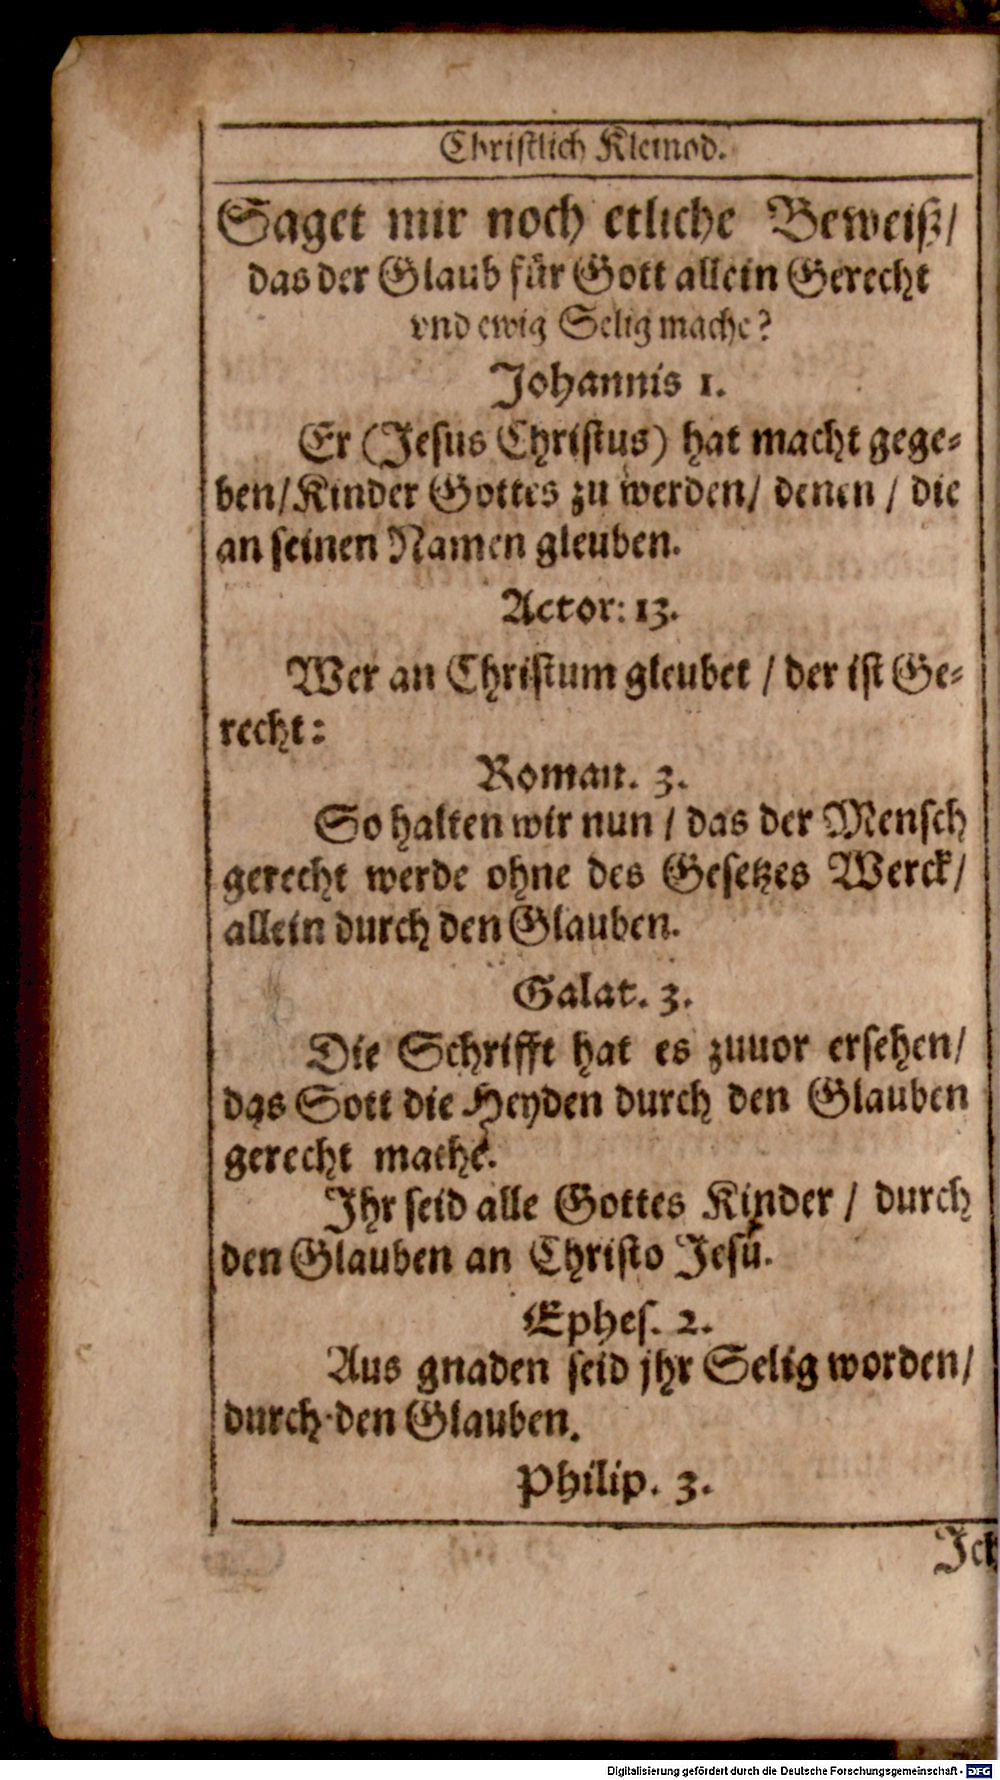 Christlich Kleinod.
Saget mir noch etliche Beweiß/
das der Glaub für Gott allein Gerecht
vnd ewig Selig mache?
Johannis 1.
Er (Jesus Christus) hat macht gege-
ben/Kinder Gottes zu werden/ denen / die
an seinen Namen gleuben.
Actor: 13.
Wer an Christum gleubet / der ist Ge-
recht:
Roman. 3.
So halten wir nun / das der Mensch
gerecht werde ohne des Gesetzes Werck/
allein durch den Glauben.
Galat. 3.
Die Schrifft hat es zuuor ersehen/
das Gott die Heyden durch den Glauben
gerecht mache.
Ihr seid alle Gottes Kinder / durch
den Glauben an Christo Jesu.
Ephes. 2.
Aus gnaden seid jhr Selig worden/
durch den Glauben.
Philip. 3.
Ich
Digitalisierung gefördert durch die Deutsche Forschungsgemeinschaft - DFG